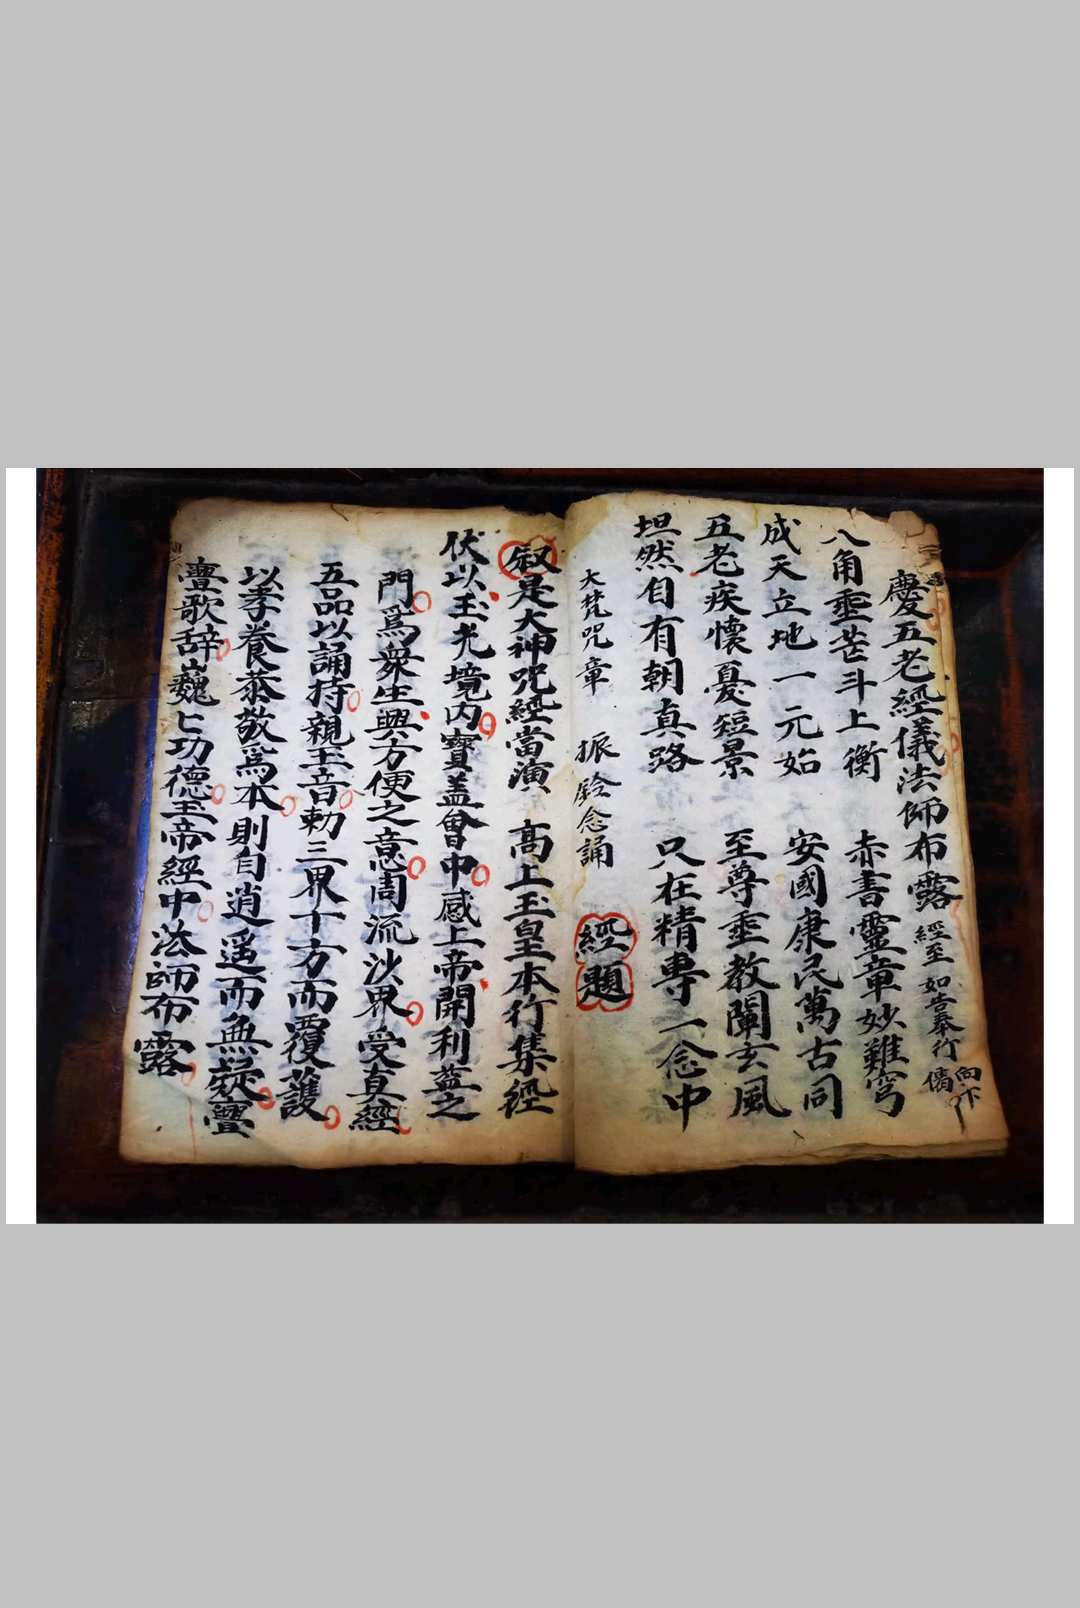 慶五老經儀法師布露 經至如告奉行
八角垂芒斗上衡 赤書靈章妙難窮
成天立地一元始 安國康民萬古同
五老疾懷憂短景 至尊垂教闡玄風
坦然自有朝真路 只在精專一念中
大梵咒章 振鈴念誦 經題
叙是大神咒經當演 髙上玉皇本行集經
伏以玉光境内寶盖會中感上帝開利益之
門爲衆生興方便之意周流沙界受真經
五品以誦持親玉音勅三界十方而覆護
以孝養恭敬爲本則自逍遥而無礙
歌辞巍〻功德玉帝經中法師布露